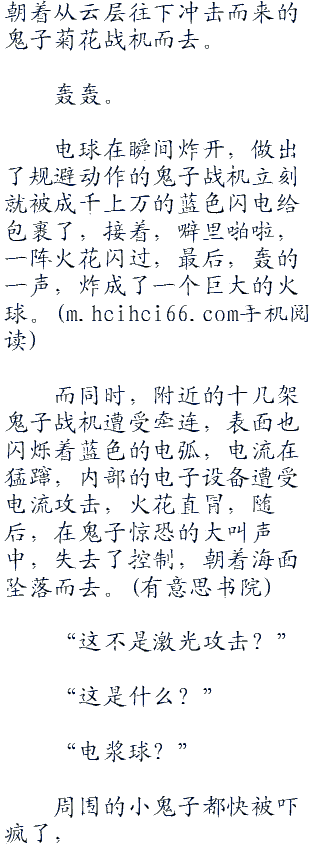 朝着从云层往下冲击而来的
鬼子菊花战机而去。
轰轰。
电球在瞬间炸开，做出
了规避动作的鬼子战机立刻
就被成千上万的蓝色闪电给
包裹了，接着，噼里啪啦，
一阵火花闪过，最后，轰的
一声，炸成了一个巨大的火
球。(m.hcihci66.com手机阅
读)
而同时，附近的十几架
鬼子战机遭受牵连，表面也
闪烁着蓝色的电弧，电流在
猛蹿，内部的电子设备遭受
电流攻击，火花直冒，随
后，在鬼子惊恐的大叫声
中，失去了控制，朝着海面
坠落而去。(有意思书院)
“这不是激光攻击？”
“这是什么？”
“电浆球？”
周围的小鬼子都快被吓
疯了，